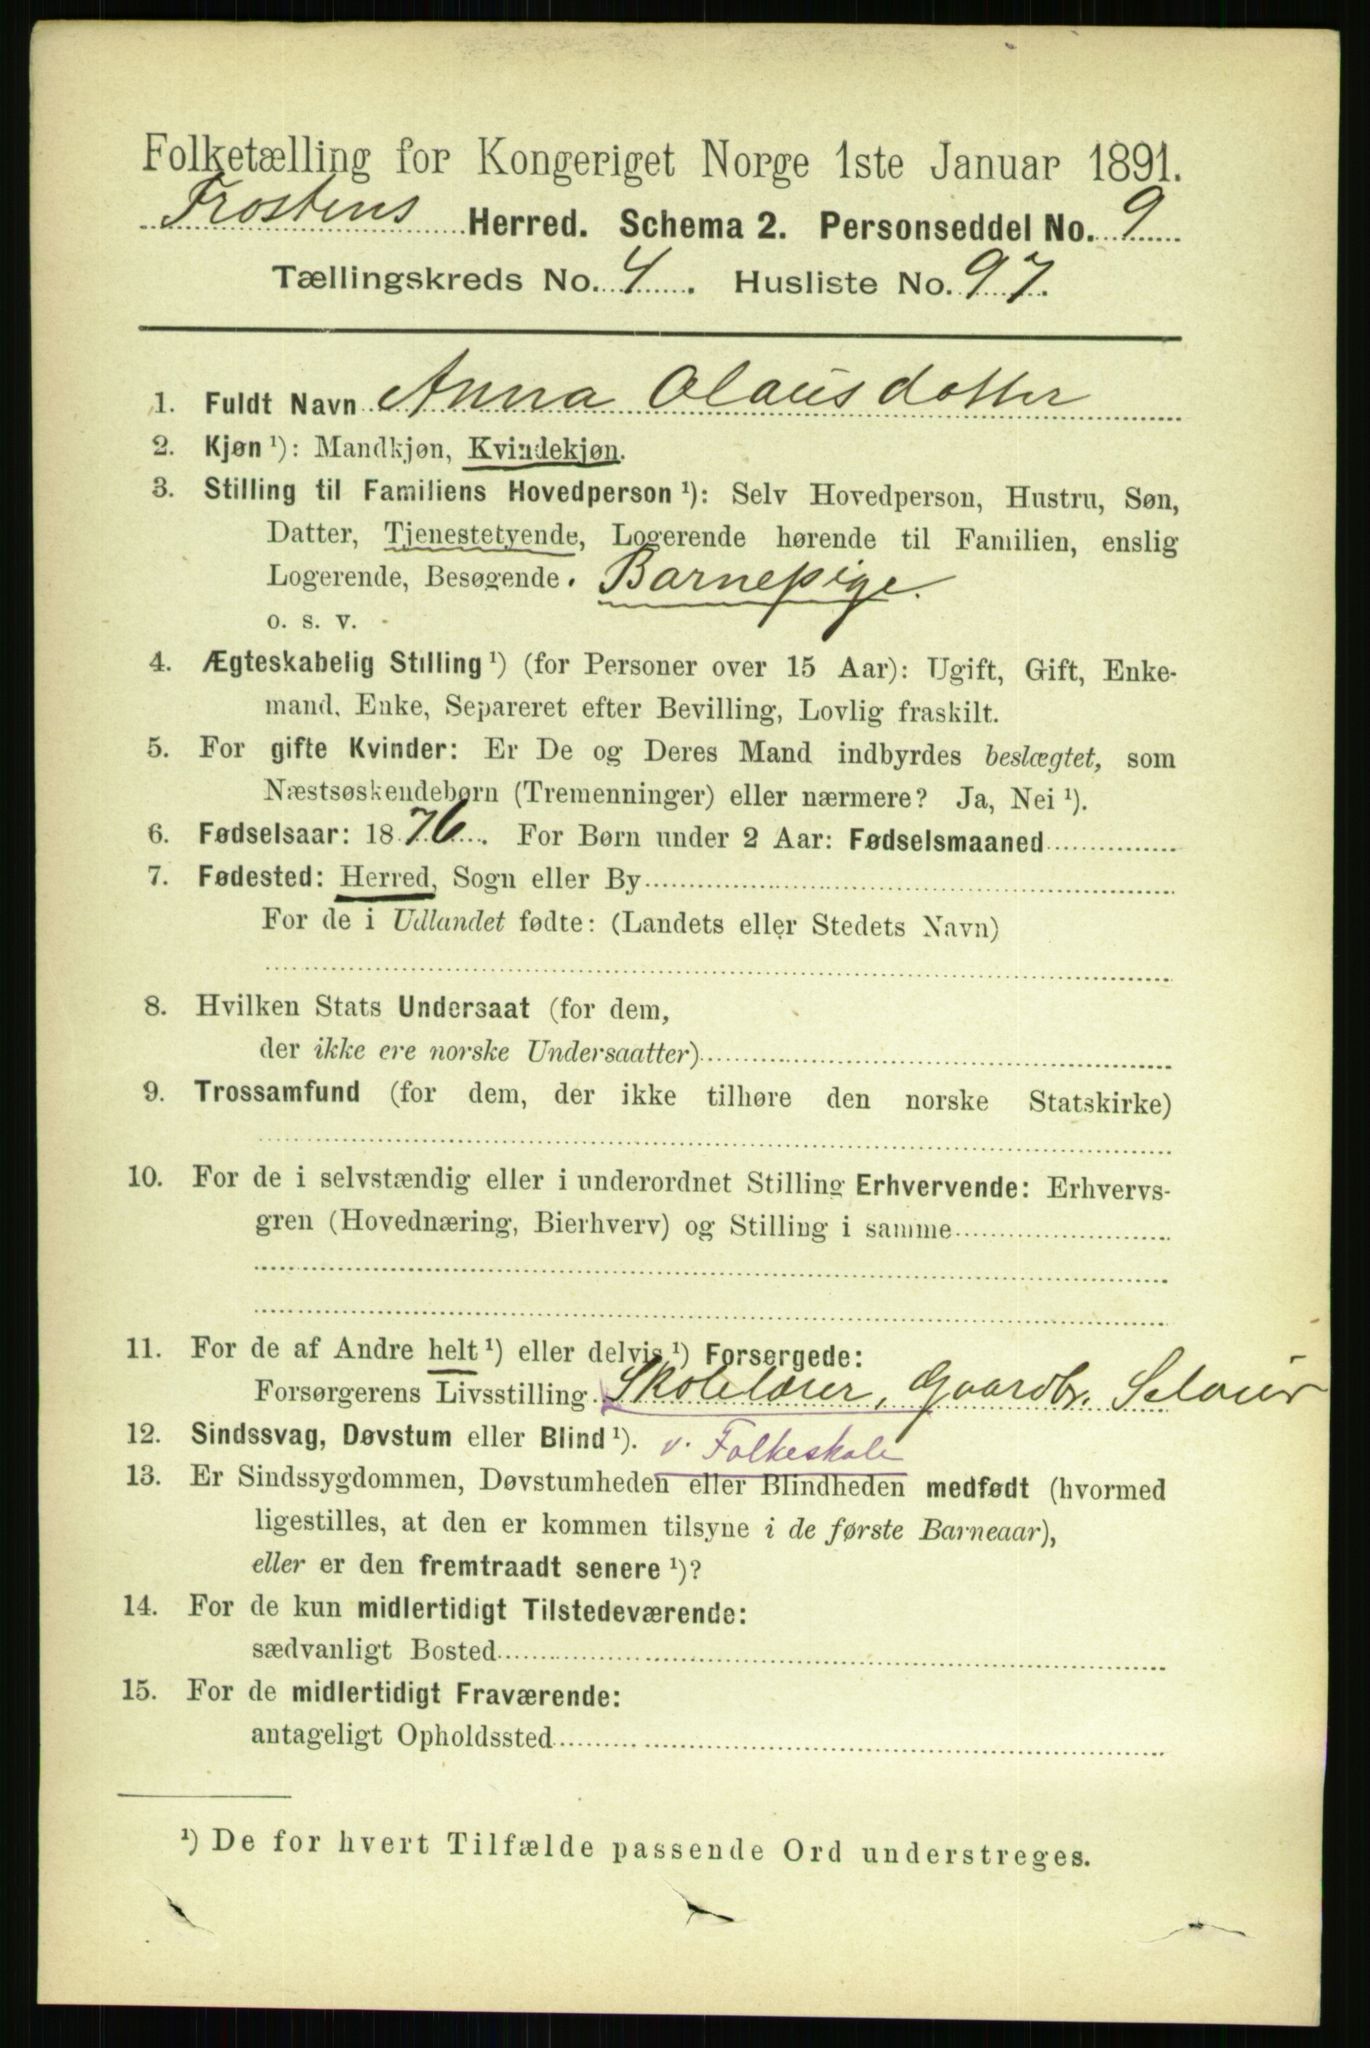 Folketælling for Kongeriget Norge 1ste Januar 1891.
Frostens Herred. Schema 2. Personseddel No. 9
Tællingskreds No. 4. Husliste No. 97.
1. Fuldt Navn Anna Olausdatter
2. Kjøn ¹): Mandkjøn, Kvindekjøn.
3. Stilling til Familiens Hovedperson ¹): Selv Hovedperson, Hustru, Søn,
Datter, Tjenestetyende, Logerende hørende til Familien, enslig
Logerende, Besøgende. Barnepige.
o. s. v.
4. Ægteskabelig Stilling ¹) (for Personer over 15 Aar): Ugift, Gift, Enke-
mand, Enke, Separeret efter Bevilling, Lovlig fraskilt.
5. For gifte Kvinder: Er De og Deres Mand indbyrdes beslægtet, som
Næstsøskendebørn (Tremenninger) eller nærmere? Ja, Nei ¹).
6. Fødselsaar: 1876. For Børn under 2 Aar: Fødselsmaaned
7. Fødested: Herred, Sogn eller By
For de i Udlandet fødte: (Landets eller Stedets Navn)
8. Hvilken Stats Undersaat (for dem,
der ikke ere norske Undersaatter)
9. Trossamfund (for dem, der ikke tilhøre den norske Statskirke)
10. For de i selvstændig eller i underordnet Stilling Erhvervende: Erhvervs-
gren (Hovednæring, Bierhverv) og Stilling i samme
11. For de af Andre helt ¹) eller delvis ¹) Forsørgede:
Forsørgerens Livsstilling Skolelærer, Gaardbr. Seloier
12. Sindssvag, Døvstum eller Blind ¹). v. Folkeskole
13. Er Sindssygdommen, Døvstumheden eller Blindheden medfødt (hvormed
ligestilles, at den er kommen tilsyne i de første Barneaar),
eller er den fremtraadt senere ¹)?
14. For de kun midlertidigt Tilstedeværende:
sædvanligt Bosted
15. For de midlertidigt Fraværende:
antageligt Opholdssted
¹) De for hvert Tilfælde passende Ord understreges.